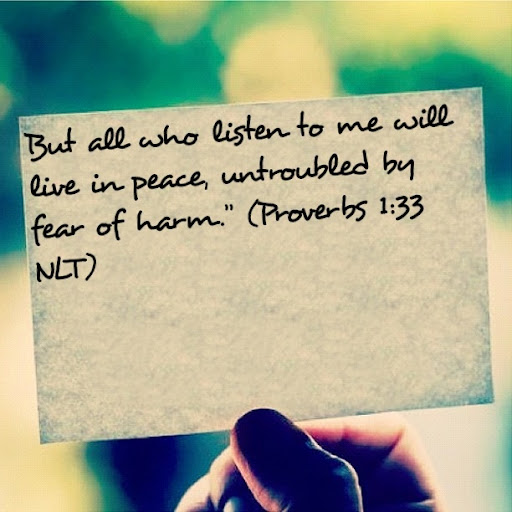 But all who listen to me will
live in peace, untroubled by
fear of harm." (Proverbs 1:33
NLT)